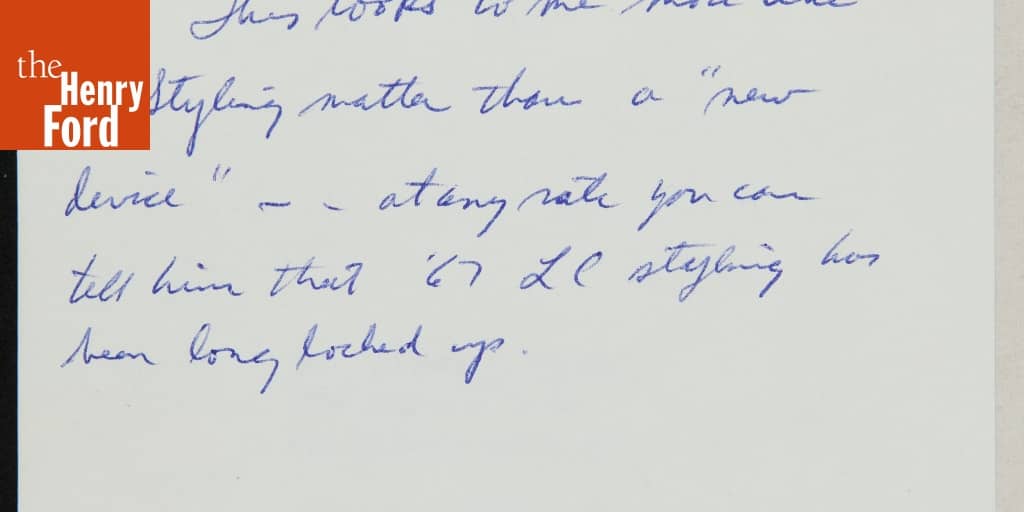 the
Henry
Ford
This looks to me more like
Styling matter than a "new
device" - - at any rate you can
tell him that '67 LC styling has
been long locked up.